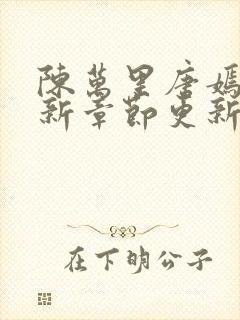 陳萬里唐嫣
新章節更新
在下明公子